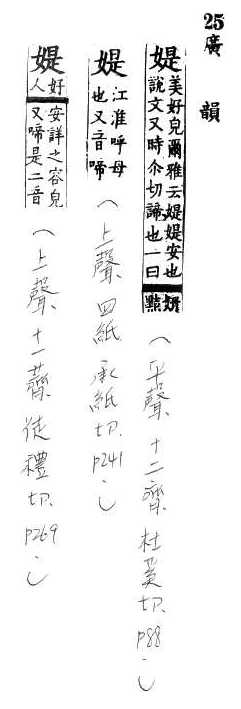 25廣韻
媞
美好皃爾雅云媞媞安也妍
說文又時尒切諦也一曰黠
(平聲、十二齊、杜奚切、p88。)
媞
江淮呼母
也又音啼
(上聲 四紙 承紙切、p241。)
媞
好安詳之容皃
人又啼是二音
(上聲、十一薺、徒禮切、p269。)